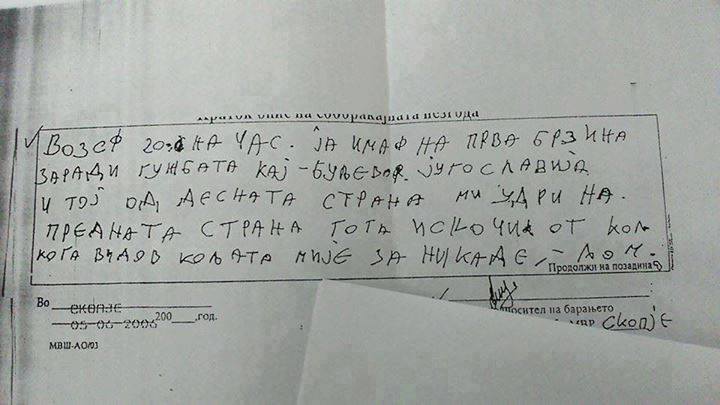 Краток опис на сообраќајната незгода
ВОЗЕФ 20 НА ЧАС. ЈА ИМАФ НА ПРВА БРЗИНА
ЗАРАДИ ГУЖБАТА КАЈ - БУЉЕВОР ЈУГОСЛАВИЈА
И ТОЈ ОД ДЕСНАТА СТРАНА МИ УДРИ НА.
ПРЕДНАТА СТРАНА ТОГА ИСКОЧИ ОТ КОЛ
КОГА ВИДОВ КОЛАТА МИЈЕ ЗА НИКАДЕ, - ЛОМ.
Продолжи на позадина
Во СКОПЈЕ
05-06-2006 200___,год.
МВШ-АО/93
носител на барањето
МВР СКОПЈЕ